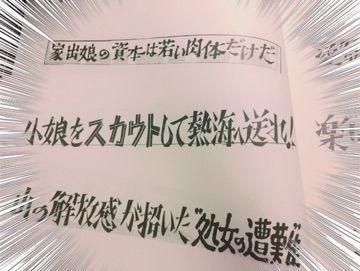 家出娘の資本は若い肉体だけだ
小娘をスカウトして熱海に送れ!!
山の解放感が招いた"処女の遭難"
楽